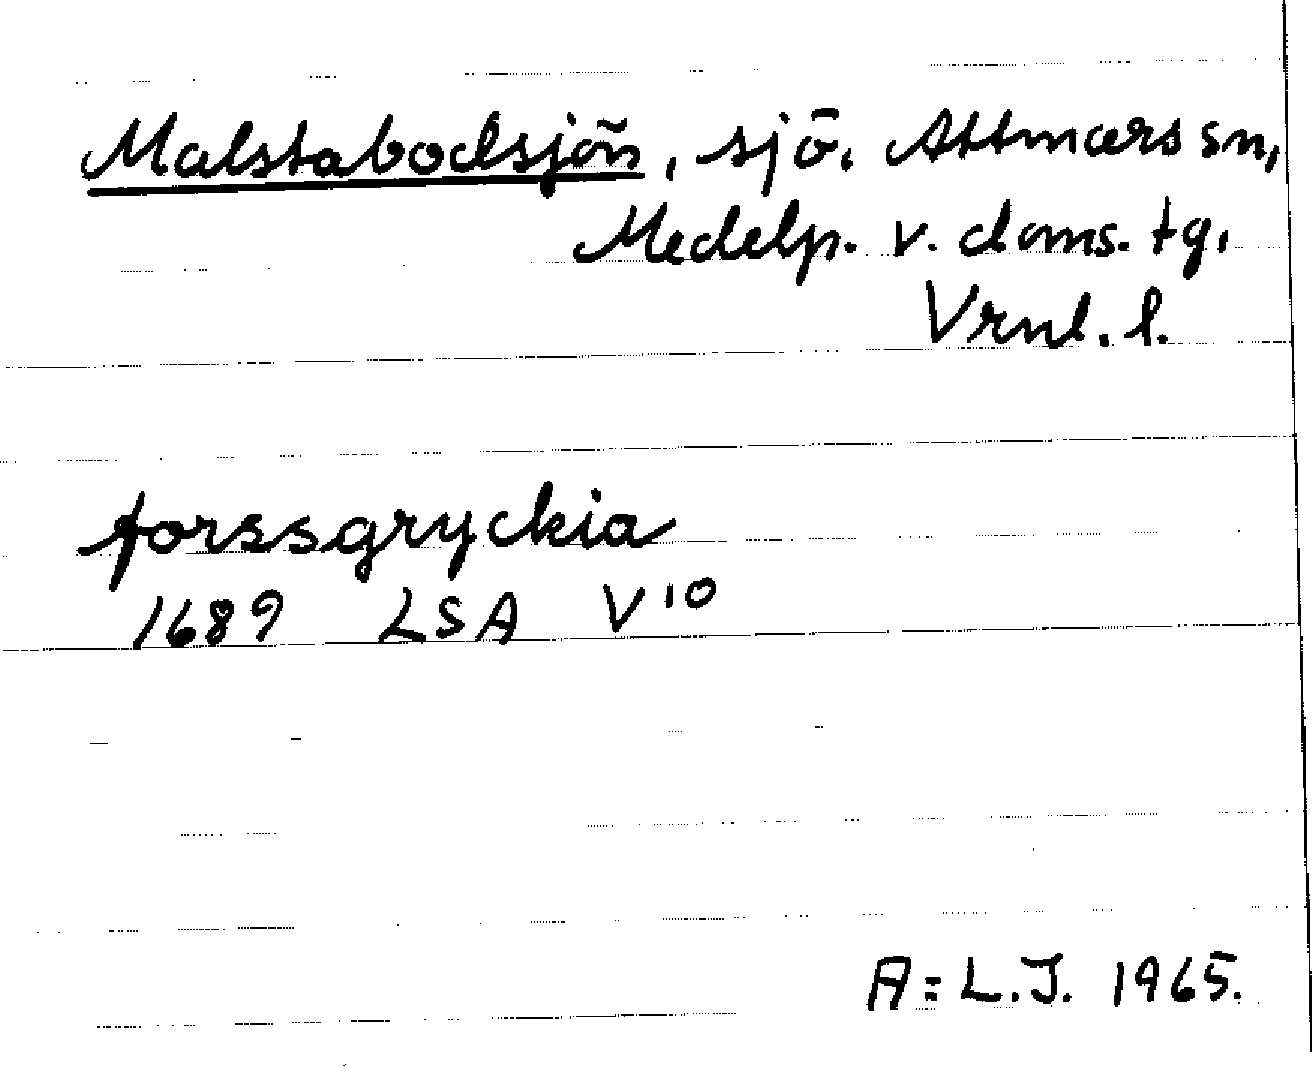 Malstabodsjön, sjö. Attmars sn,
Medelp. v. doms. tg.
Vrnl. l.
forssgryckia
1689 LSA V 10
A: L.J. 1965.